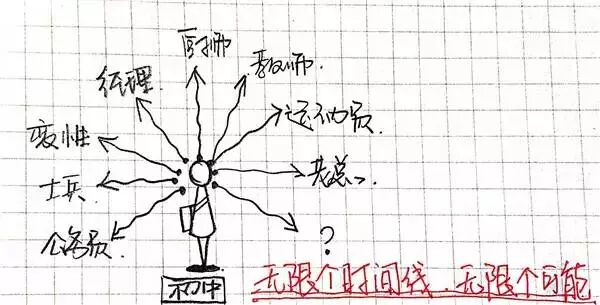 医师
教师
经理
运动员
变性
士兵
老总
公务员
?
初中
无限个时间线.无限个可能